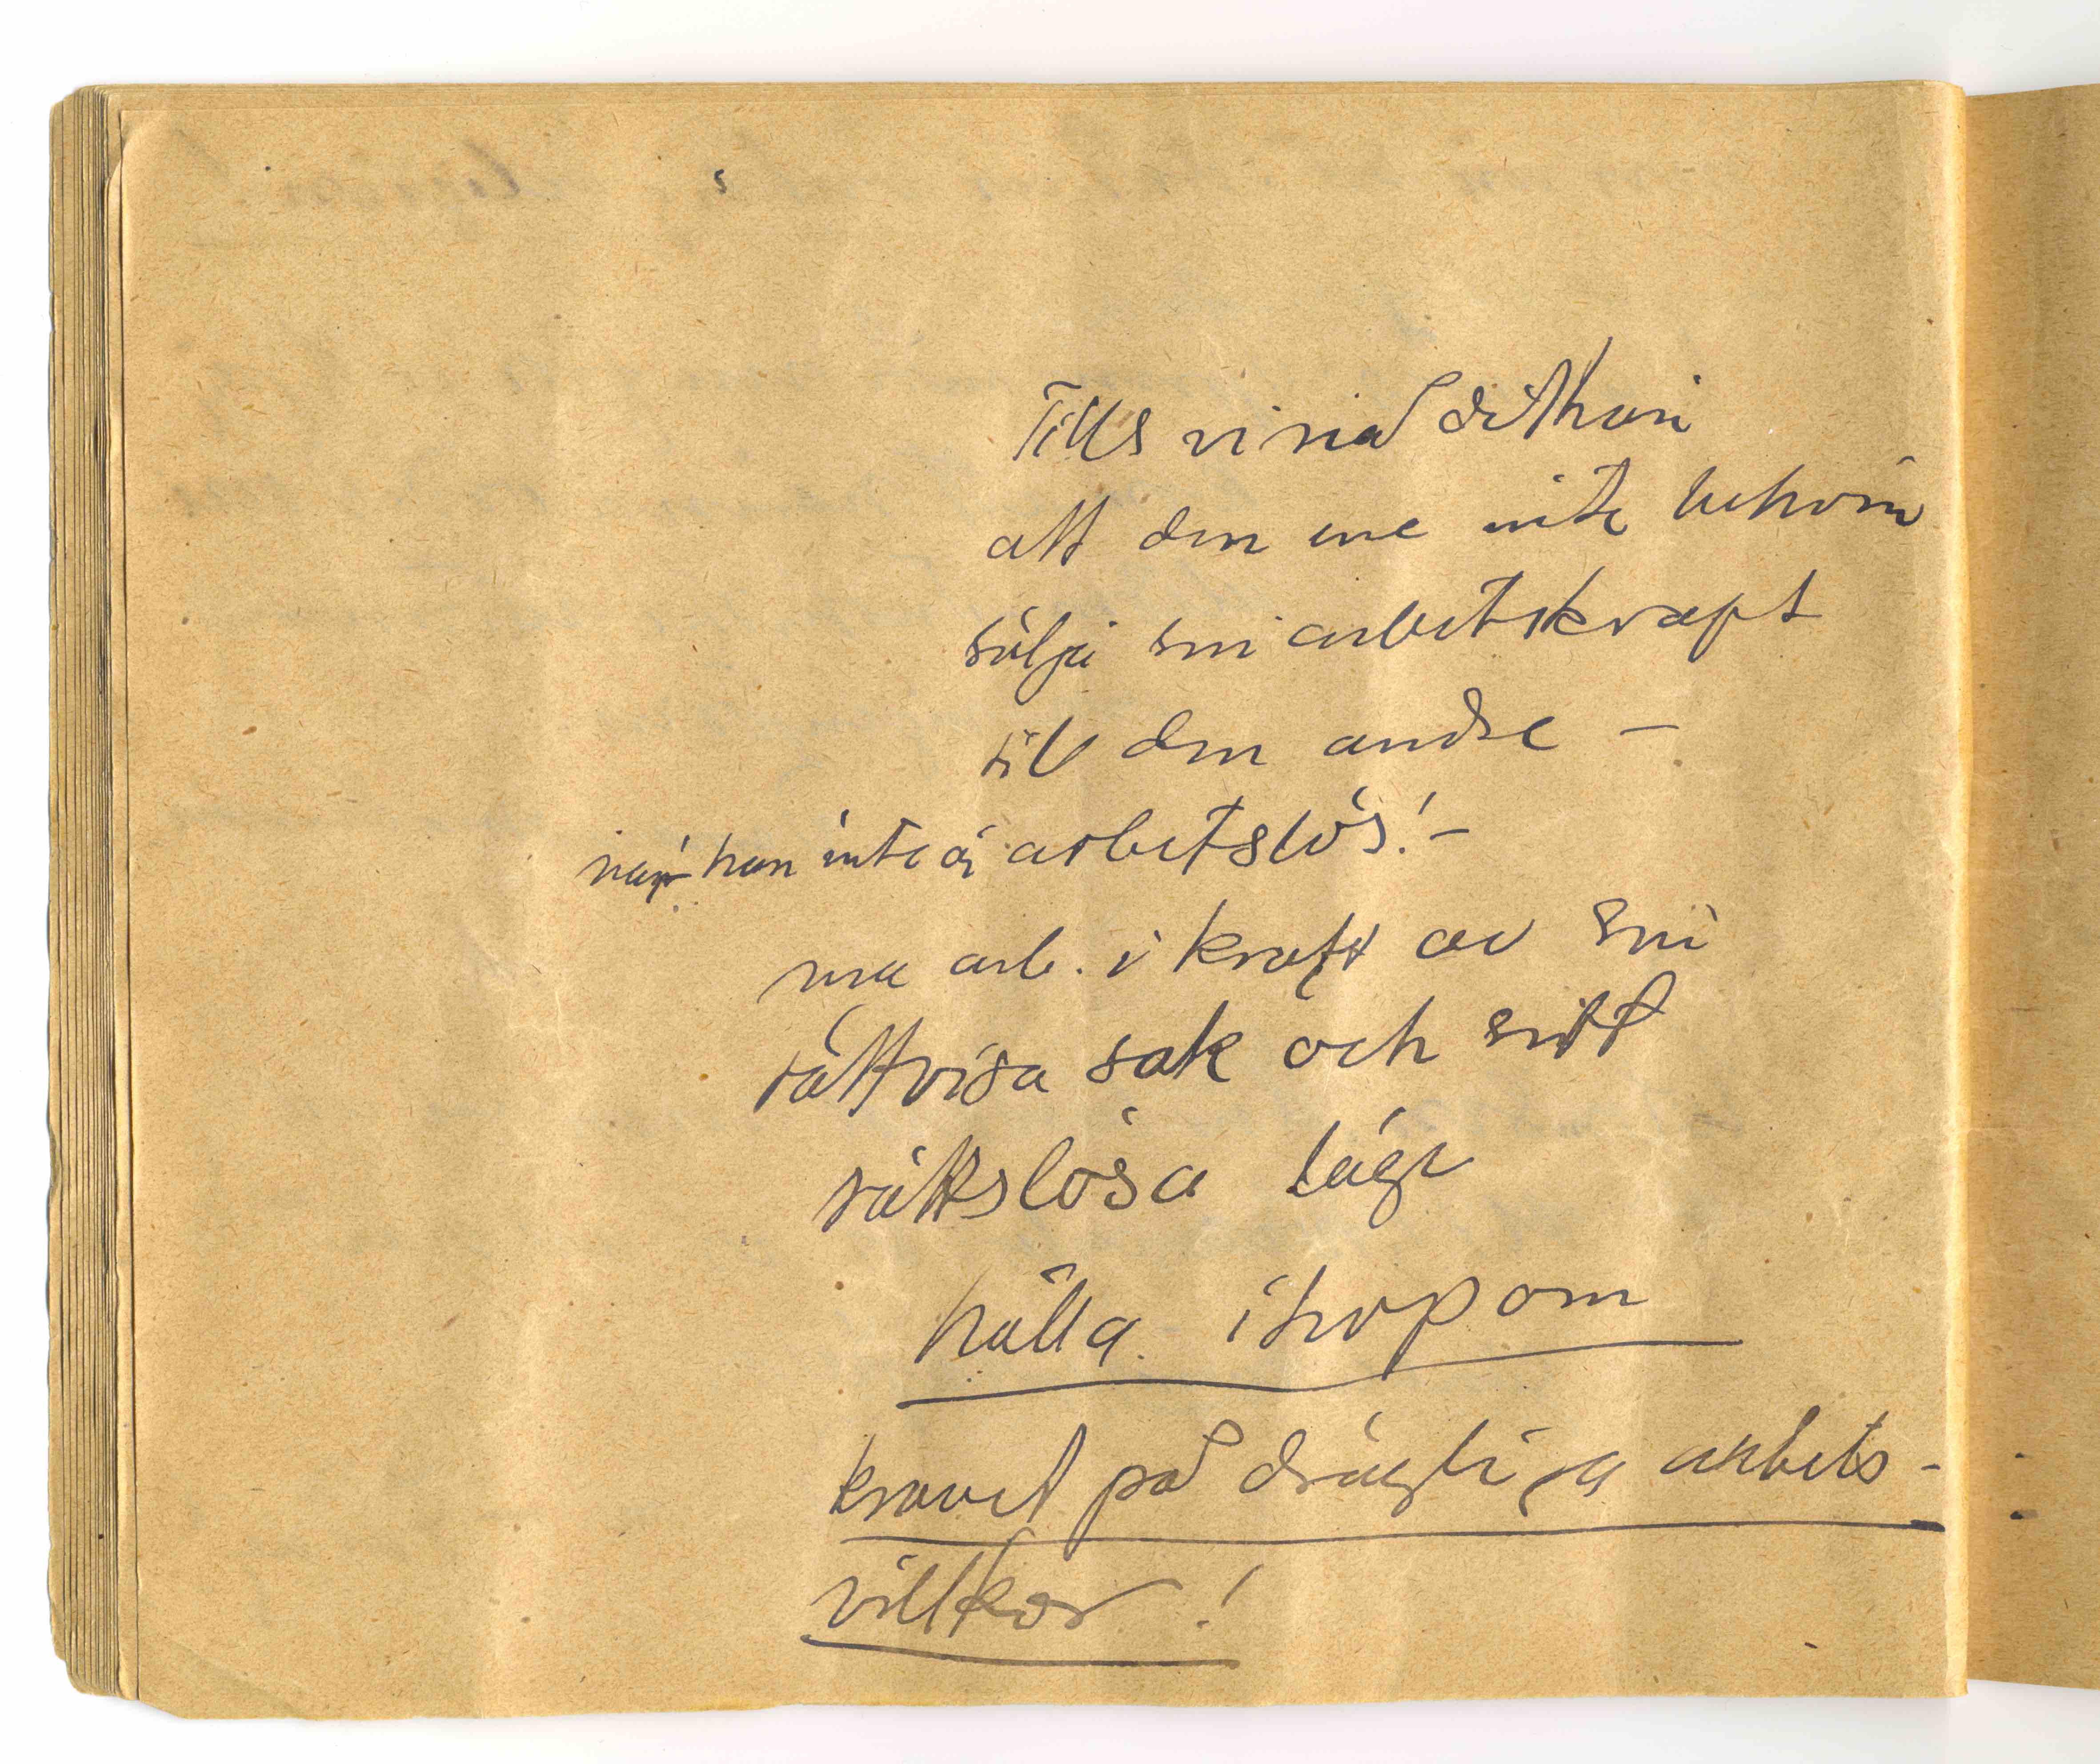 Tills vi nå dithän
att den ene inte behöver
sälja sin arbetskraft
till den andre –
när han inte är arbetslös! –
arb. i kraft av sin
rättvisa sak och sitt
rättslösa läge
hålla ihop om
kravet på drägliga arbets-
villkor!